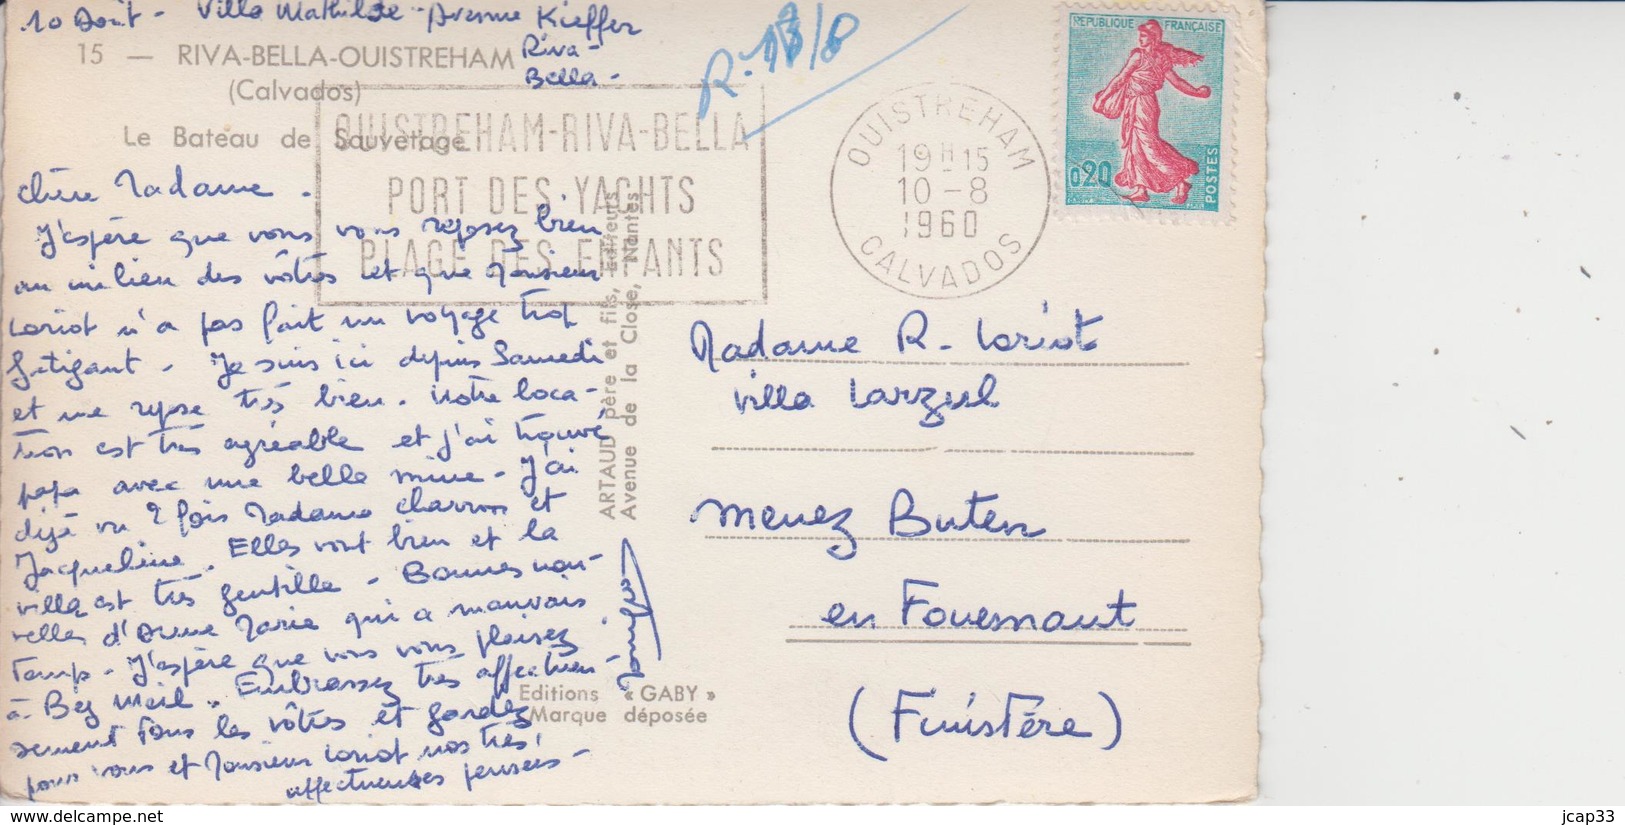 10 Août - Villa Mathilde - Avenue Kieffer
Riva-
Bella -
15 — RIVA-BELLA-OUISTREHAM
(Calvados)
Le Bateau de Sauvetage
R. 18/8
OUISTREHAM-RIVA-BELLA
PORT DES YACHTS
PLAGE DES ENFANTS
OUISTREHAM
19H15
10-8
1960
CALVADOS
REPUBLIQUE FRANÇAISE
0,20
POSTES
Chère Madame.
J'espère que vous vous reposez bien
au milieu des vôtres et que Monsieur
Loriot n'a pas fait un voyage trop
fatigant - Je suis ici depuis Samedi
et me repose très bien. Notre loca-
tion est très agréable et j'ai trouvé
papa avec une belle mine - J'ai
déjà vu 2 fois Madame Charron et
Jacqueline. Elles vont bien et la
villa est très gentille - Bonnes nou-
velles d'Anne Marie qui a mauvais
temps - J'espère que vous vous plaisez
à Beg Meil. Embrassez très affectueu-
sement tous les vôtres et gardez
pour vous et Monsieur Loriot nos très
affectueuses pensées -
ARTAUD père et fils, Editeurs
Avenue de la Close, Nantes
Editions « GABY »
Marque déposée
Madame R. Loriot
Villa Larzul
Menez Buten
en Fouesnant
(Finistère)
jcap33